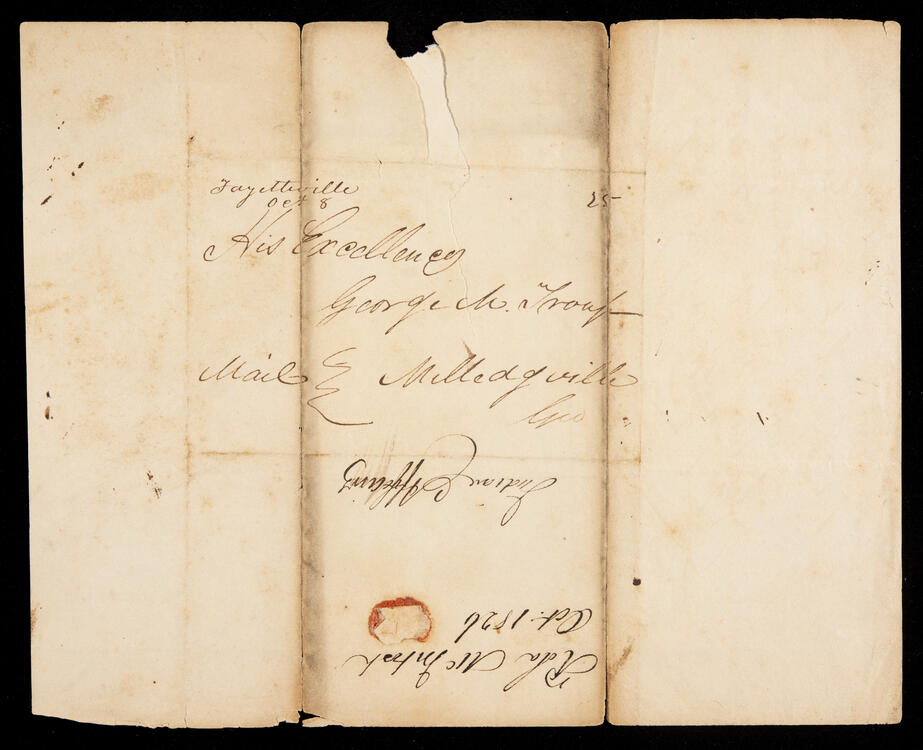 Fayetteville
Oct 8
25
His Excellency
George M. Troup
Mail Milledgville
Geo
Indian Affairs
Oct. 1826
McIntosh